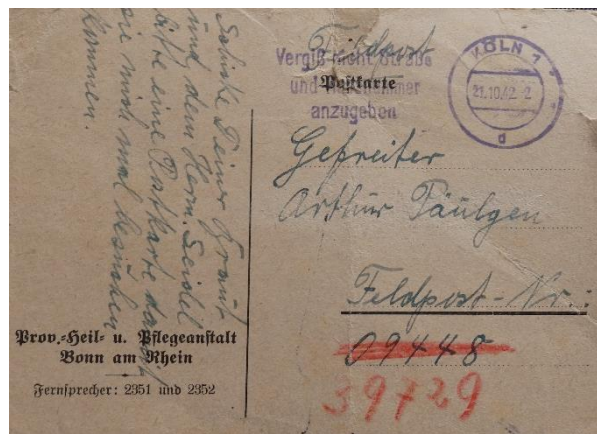 Feldpost
Postkarte
Vergiß nicht Straße
und Hausnummer
anzugeben
KÖLN 7
21.10.42-2
d
Gefreiter
Arthur Päulgen
Feldpost-Nr.:
09448
39729
Schicke Deiner Fraut
und dem Herrn Seidel
bitte eine Postkarte damit
sie mich mal besuchen
kommen.
Prov.-Heil- u. Pflegeanstalt
Bonn am Rhein
Fernsprecher: 2351 und 2352